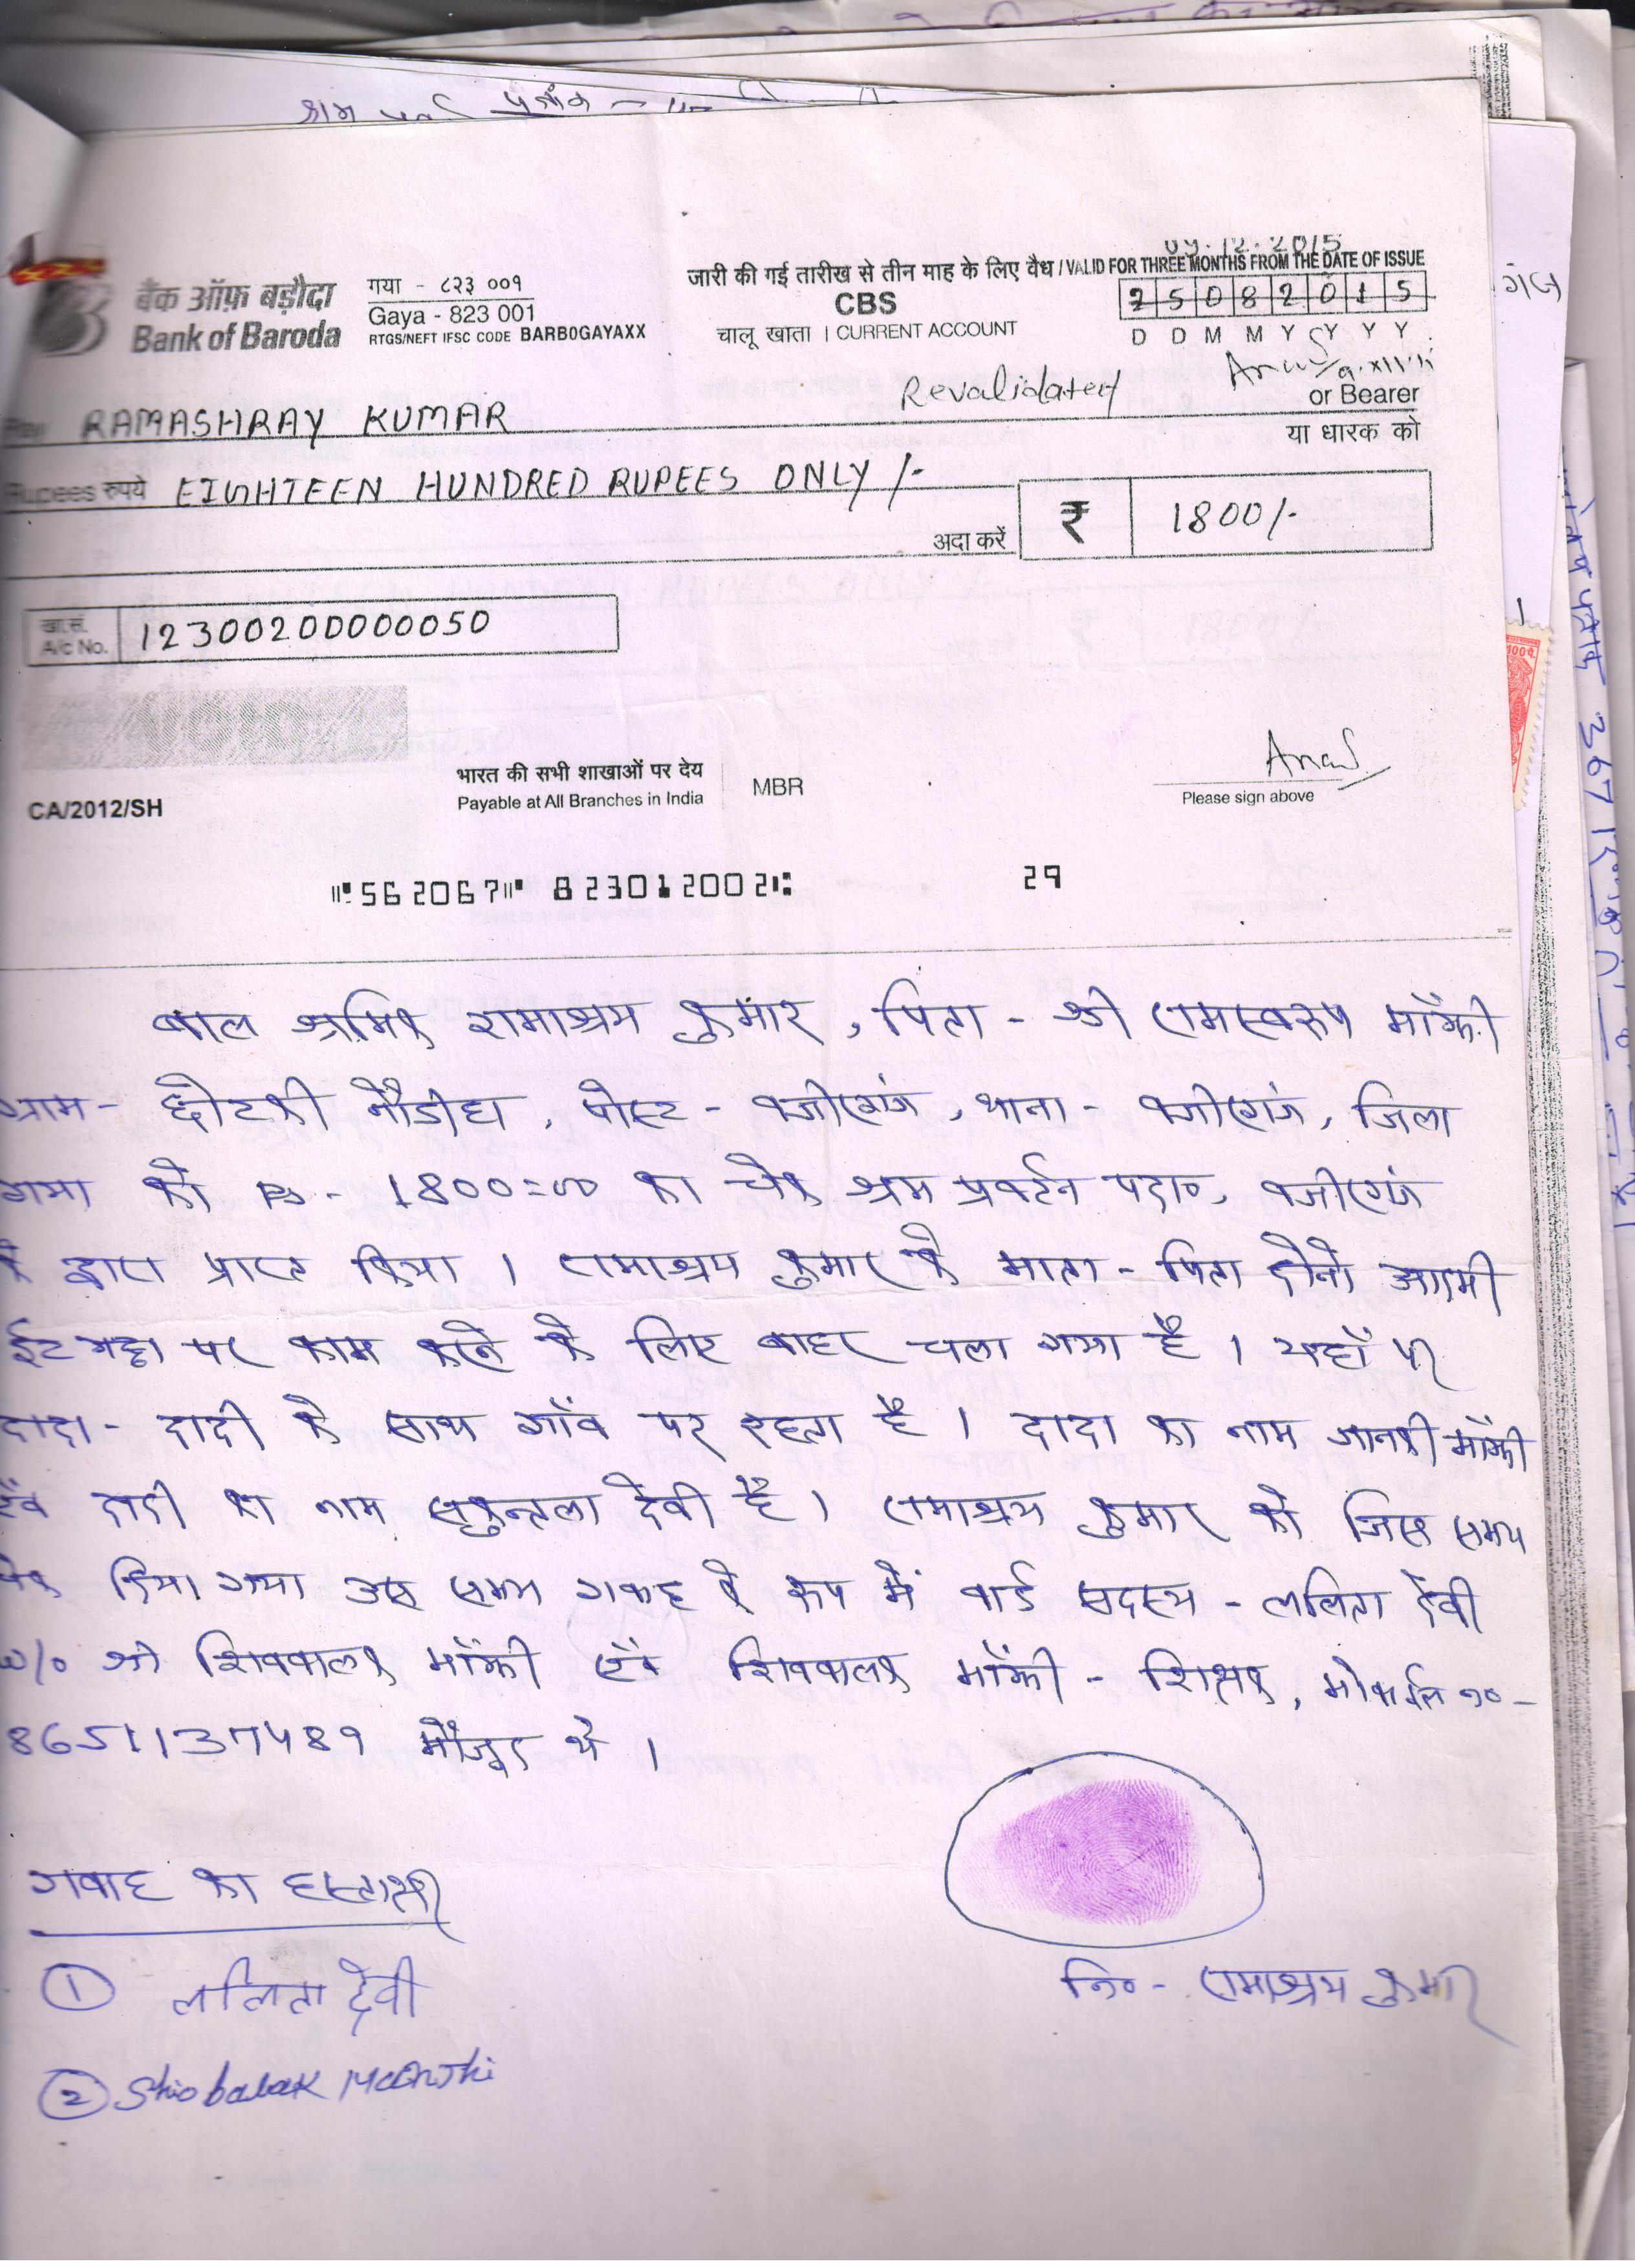 09.12.2015
बैंक ऑफ़ बड़ौदा
Bank of Baroda
गया - ८२३ ००१
Gaya - 823 001
RTGS/NEFT IFSC CODE BARB0GAYAXX
जारी की गई तारीख से तीन माह के लिए वैध / VALID FOR THREE MONTHS FROM THE DATE OF ISSUE
CBS
चालू खाता | CURRENT ACCOUNT
25082015
D D M M Y Y Y Y
Revalidated
or Bearer
Pay RAMASHRAY KUMAR
या धारक को
Rupees रुपये EIGHTEEN HUNDRED RUPEES ONLY /-
अदा करें ₹ 1800/-
खा.सं.
A/c No. 12300200000050
VOID
भारत की सभी शाखाओं पर देय
Payable at All Branches in India
MBR
CA/2012/SH
Please sign above
562067 823012002 29
बाल श्रमिक रामाश्रय कुमार, पिता - श्री रामस्वरूप माँझी
ग्राम - छोटकी नौडीहा, पोस्ट - वजीरगंज, थाना - वजीरगंज, जिला
गया को Rs - 1800=00 का चेक श्रम प्रवर्तन पदा०, वजीरगंज
के द्वारा प्राप्त किया । रामाश्रय कुमार के माता - पिता दोनो आदमी
ईट भट्ठा पर काम करने के लिए बाहर चला गया है । यहाँ पर
दादा - दादी के साथ गाँव पर रहता है । दादा का नाम जानकी माँझी
एवं दादी का नाम सकुन्तला देवी है । रामाश्रय कुमार को जिस समय
चेक दिया गया उस समय गवाह के रूप में वार्ड सदस्य - ललिता देवी
w/o श्री शिवबालक माँझी एवं शिवबालक माँझी - शिक्षक, मोबाईल न० -
8651137489 मौजूद थे ।
गवाह का हस्ताक्षर
① ललिता देवी
② Shiobalak Manjhi
नि० - रामाश्रय कुमार